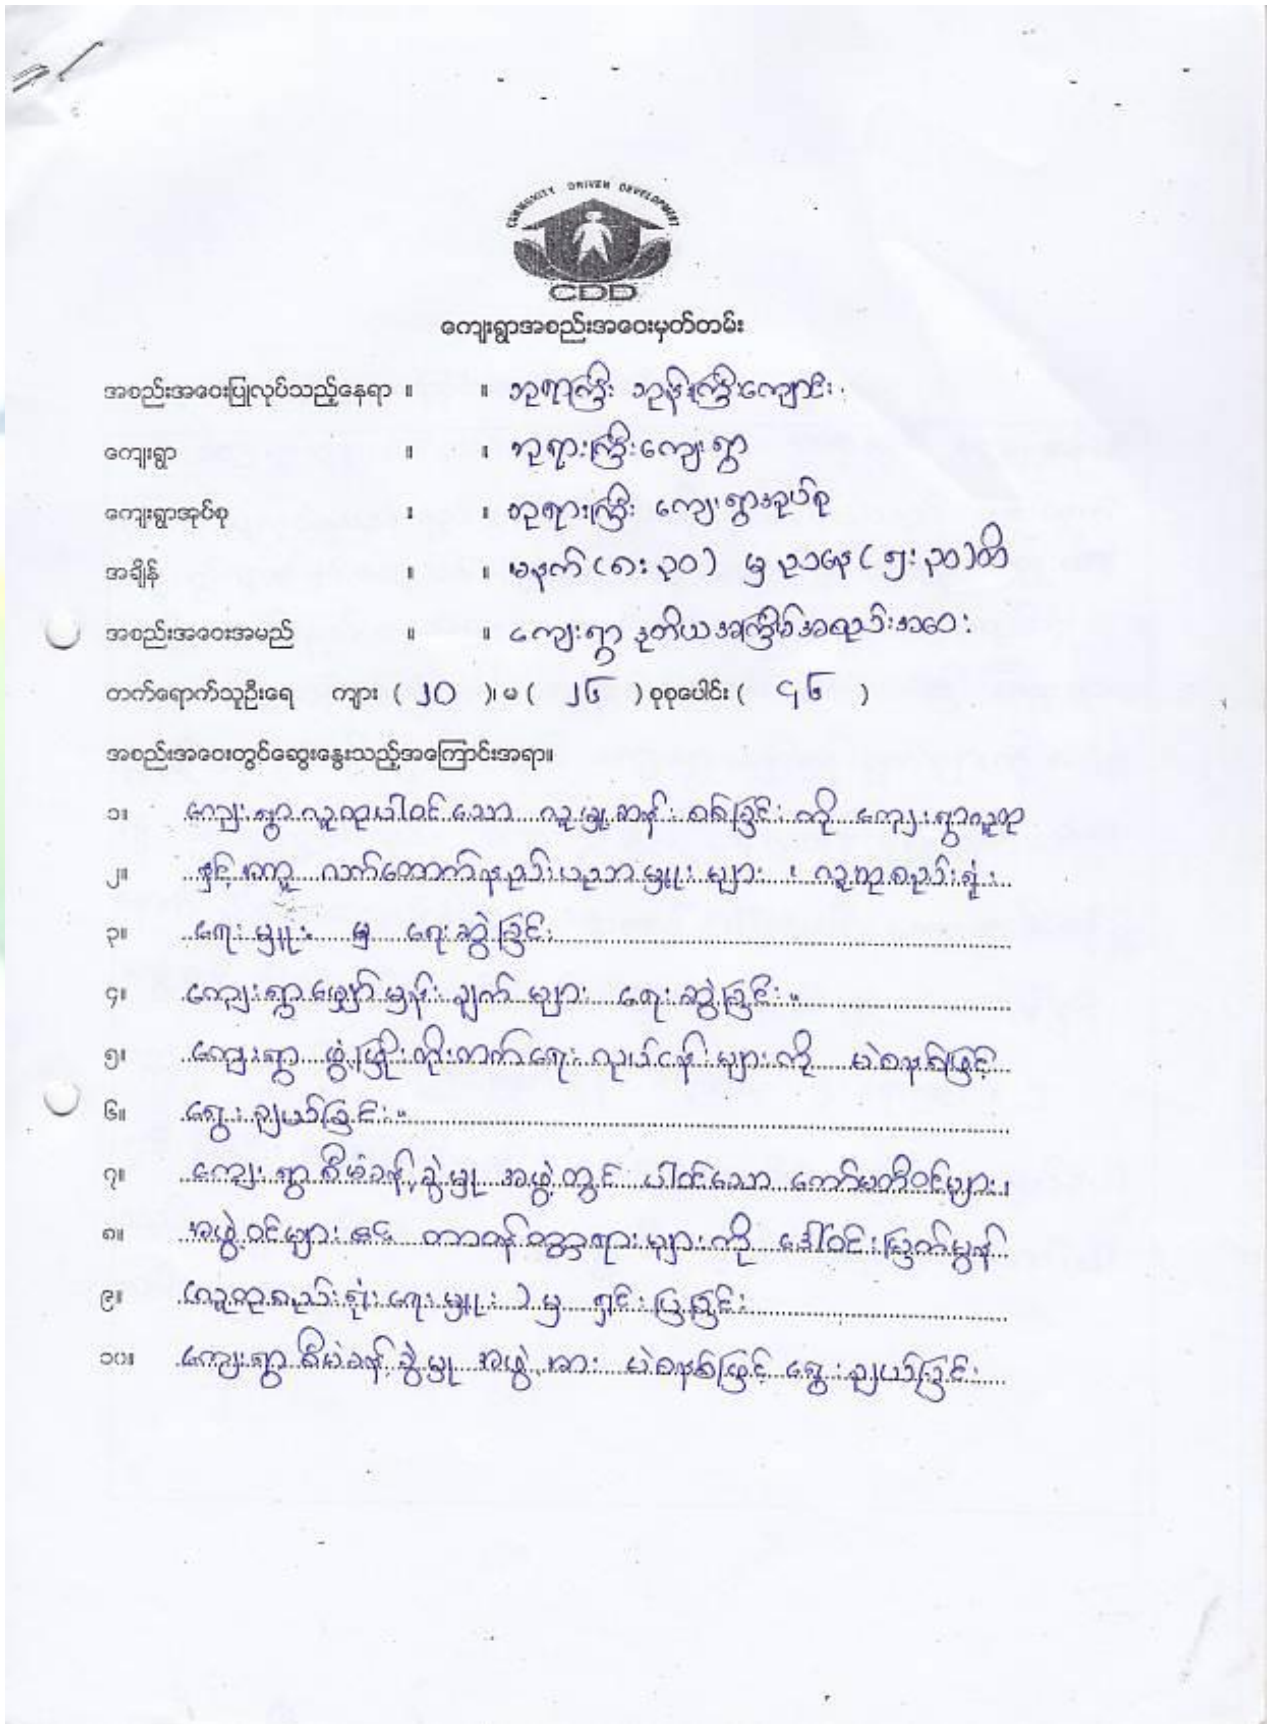 COMMUNITY DRIVEN DEVELOPMENT
CDD
ကျေးရွာအစည်းအဝေးမှတ်တမ်း
အစည်းအဝေးပြုလုပ်သည့်နေရာ ။ ။ ဘုရားကြီး ဘုန်းကြီးကျောင်း
ကျေးရွာ ။ ။ ဘုရားကြီးကျေးရွာ
ကျေးရွာအုပ်စု ။ ။ ဘုရားကြီး ကျေးရွာအုပ်စု
အချိန် ။ ။ မနက် (၈း ၃၀) မှ ညနေ (၅း ၃၀)ထိ
အစည်းအဝေးအမည် ။ ။ ကျေးရွာ ဒုတိယအကြိမ်အစည်းအဝေး
တက်ရောက်သူဦးရေ ကျား ( ၂၀ )၊ မ ( ၂၆ ) စုစုပေါင်း ( ၄၆ )
အစည်းအဝေးတွင်ဆွေးနွေးသည့်အကြောင်းအရာ။
၁။ ကျေးရွာလူထုပါဝင်သော လူမှုဆန်းစစ်ခြင်းကို ကျေးရွာလူထု
၂။ နှင့်အတူ လက်ထောက်နည်းပညာမှူးများ ၊ လူထုစည်းရုံး
၃။ ရေးမှူး မှ ရေးဆွဲခြင်း
၄။ ကျေးရွာမျှော်မှန်းချက်များ ရေးဆွဲခြင်း။
၅။ ကျေးရွာ ဖွံ့ဖြိုးတိုးတက်ရေး လုပ်ငန်းများကို မဲစနစ်ဖြင့်
၆။ ရွေးချယ်ခြင်း။
၇။ ကျေးရွာစီမံခန့်ခွဲမှု အဖွဲ့တွင် ပါဝင်သော ကော်မတီဝင်များ၊
၈။ အဖွဲ့ဝင်များ ၏ တာဝန်ဝတ္တရားများကို ဒေါ်ဝင်းမြတ်မွန်
၉။ (လူထုစည်းရုံးရေးမှူး) မှ ရှင်းပြခြင်း
၁၀။ ကျေးရွာစီမံခန့်ခွဲမှု အဖွဲ့အား မဲစနစ်ဖြင့် ရွေးချယ်ခြင်း